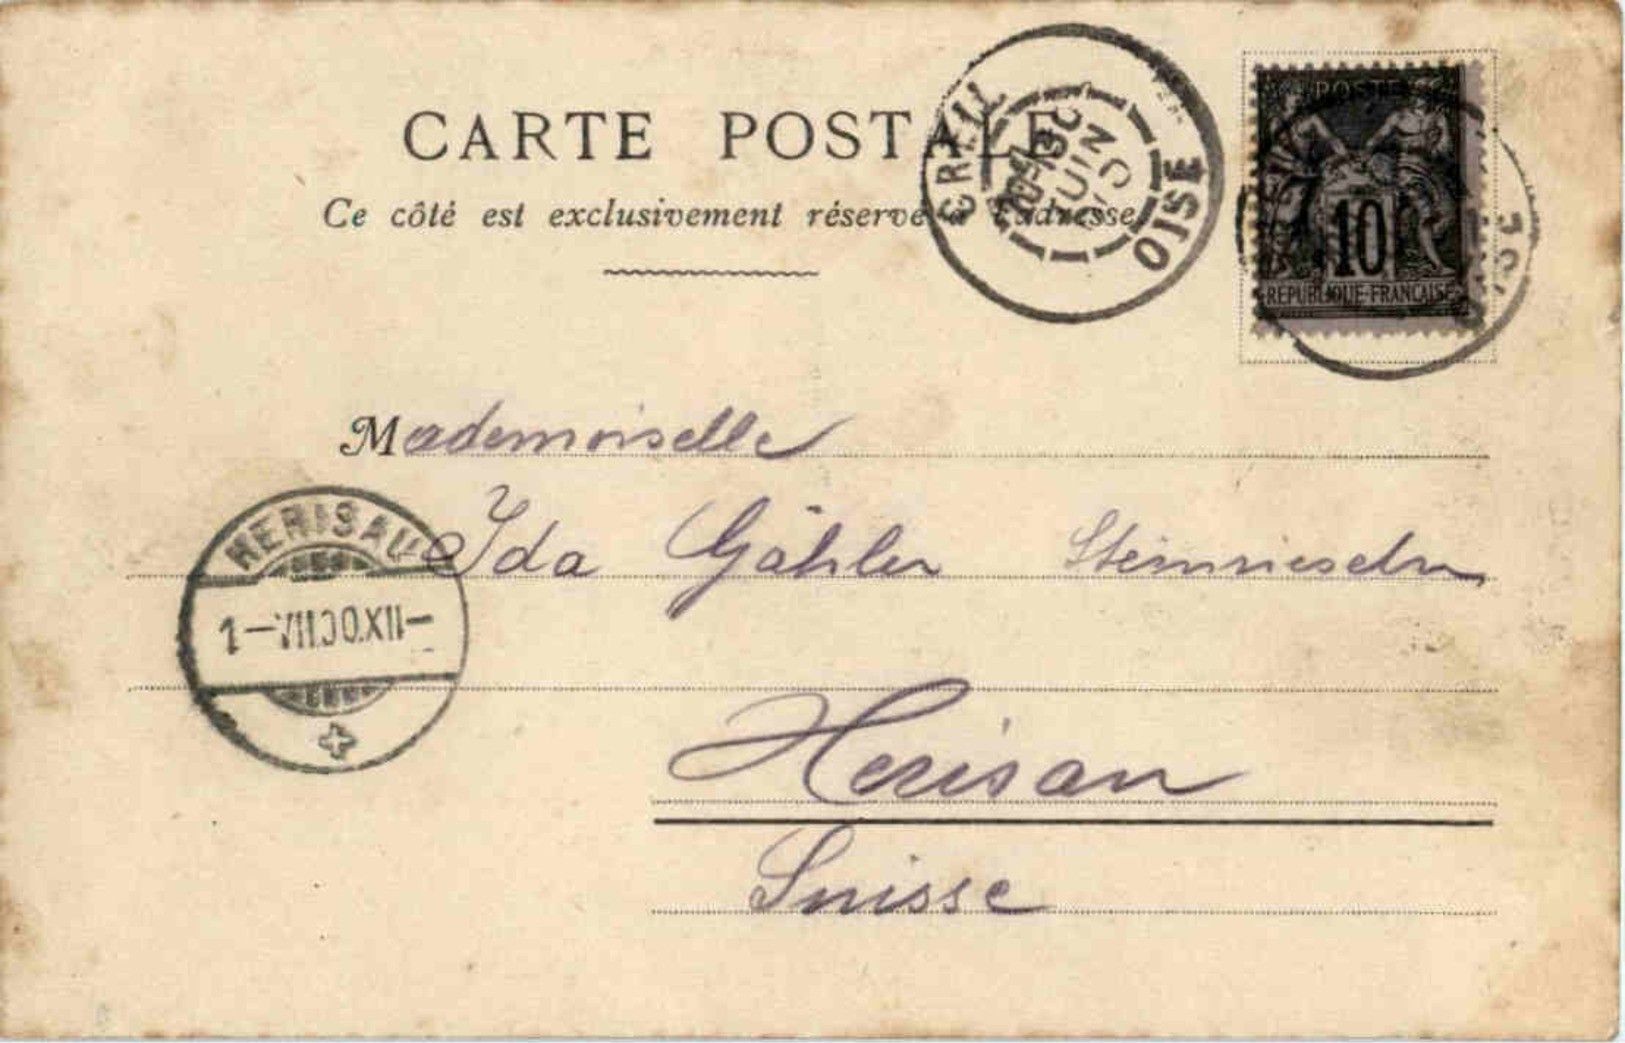 CARTE POSTALE
Ce côté est exclusivement réservé à l'adresse
CREIL
30
JUIN
OISE
POSTES
10
REPUBLIQUE FRANÇAISE
Mademoiselle
Ida Gähler
Herisau
Suisse
HERISAU
1 – VII 00. XII –